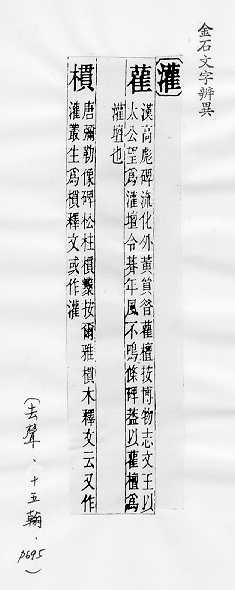 金石文字辨異
灌
雚 漢高彪碑流化外黃貧咎雚檀按博物志文王以
太公望為灌壇令朞年風不鳴條碑葢以雚檀為
灌壇也
樌 唐彌勒像碑松柱樌叢按爾雅樌木釋文云又作
灌叢生為樌釋文或作灌
(去聲、十五翰. p695)